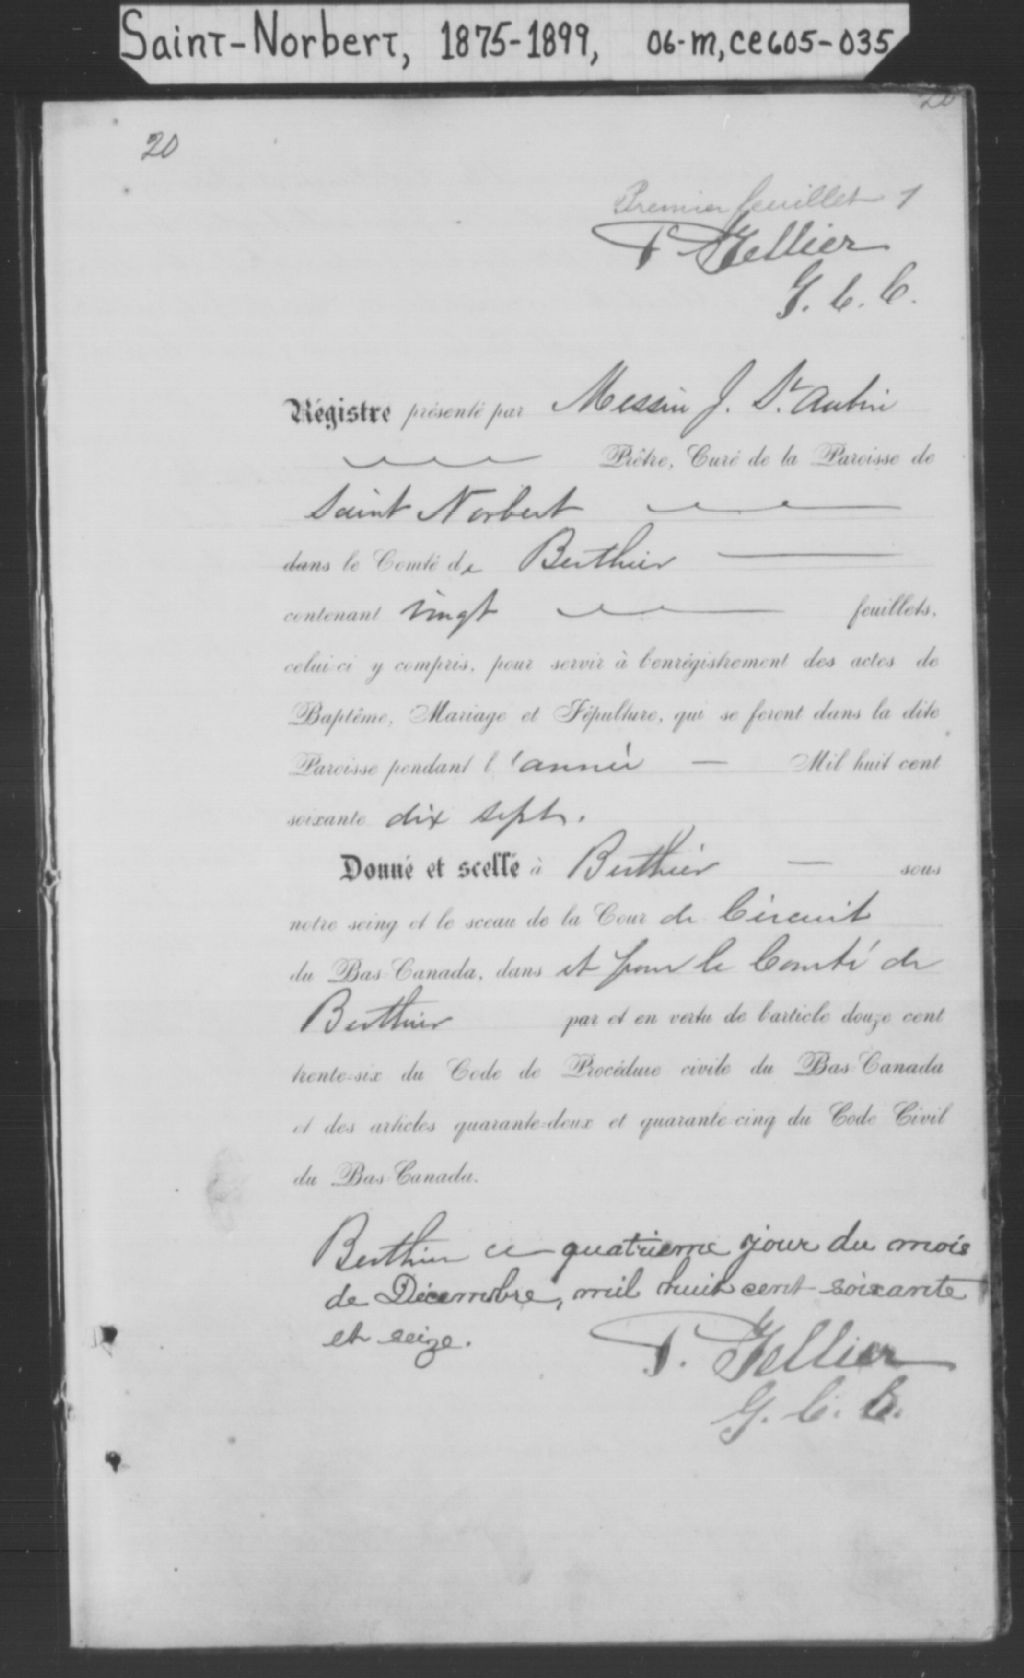 Saint-Norbert, 1875-1899, 06-m, ce605-035
20
20
Premier feuillet 1
P. Tellier
G. C. C.
Régistre présenté par Messire J. St. Aubin
Prêtre, Curé de la Paroisse de
Saint Norbert
dans le Comté de Berthier
contenant vingt feuillets,
celui-ci y compris, pour servir à l'enrégistrement des actes de
Baptême, Mariage et Sépulture, qui se feront dans la dite
Paroisse pendant l'année — Mil huit cent
soixante dix sept.
Donné et scellé à Berthier — sous
notre seing et le sceau de la Cour de Circuit
du Bas-Canada, dans et pour le Comté de
Berthier par et en vertu de l'article douze cent
trente-six du Code de Procédure civile du Bas-Canada
et des articles quarante-deux et quarante-cinq du Code Civil
du Bas-Canada.
Berthier ce quatrième jour du mois
de Décembre, mil huit cent soixante
et seize.
P. Tellier
G. C. C.